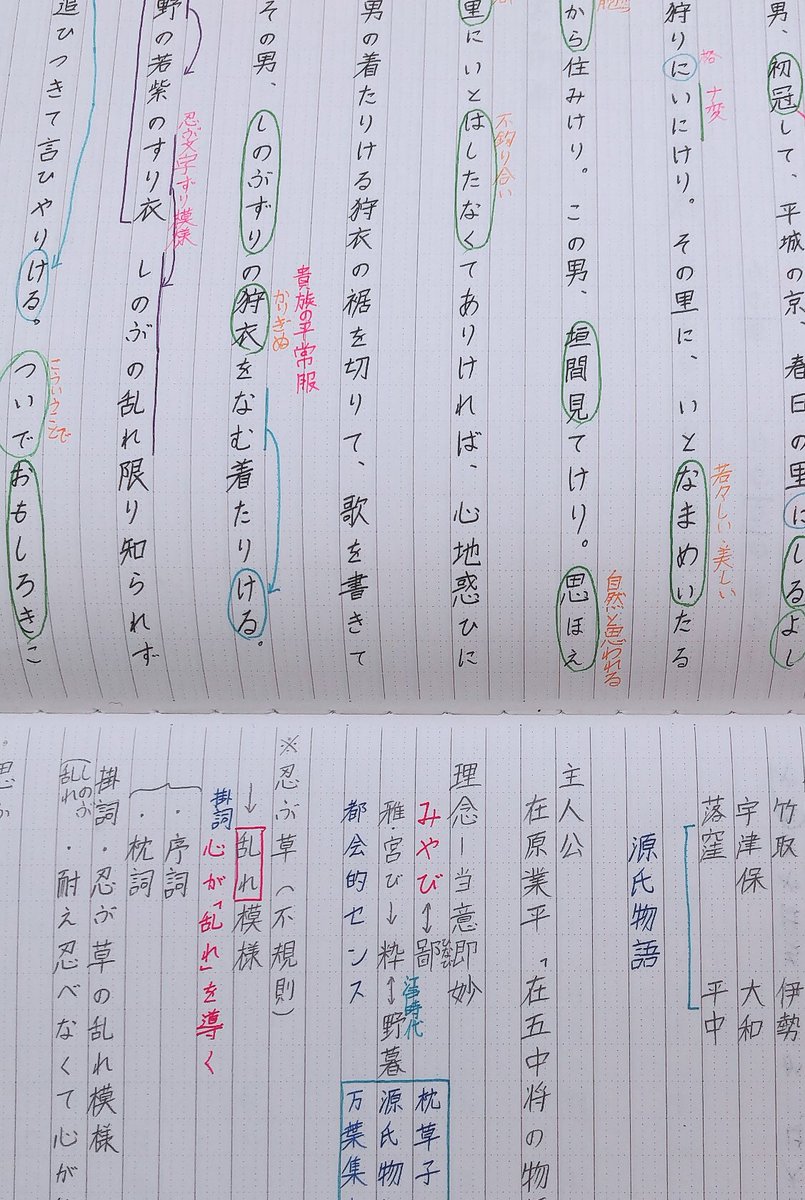 男、初冠して、平城の京、春日の里にしるよし
狩りにいにけり。その里に、いとなまめいたる
ナ変
若々しい・美しい
から住みけり。この男、垣間見てけり。思ほえ
自然と思われる
里にいとはしたなくてありければ、心地惑ひに
不釣り合い
男の着たりける狩衣の裾を切りて、歌を書きて
その男、しのぶずりの狩衣をなむ着たりける。
貴族の平常服
かりぎぬ
野の若紫のすり衣 しのぶの乱れ限り知られず
忍ぶ文字ずり模様
追ひつきて言ひやりける。ついでおもしろきこ
こういうことで
竹取 伊勢
宇津保 大和
落窪 平中
源氏物語
主人公
在原業平「在五中将の物
理念ー当意即妙
みやび↔鄙
雅・宮び→粋↔野暮
江戸時代
都会的センス
枕草子
源氏物
万葉集
※忍ぶ草(不規則)
→乱れ模様
掛詞 心が「乱れ」を導く
・序詞
・枕詞
掛詞・忍ぶ草の乱れ模様
しのぶ
乱れ
・耐え忍べなくて心が